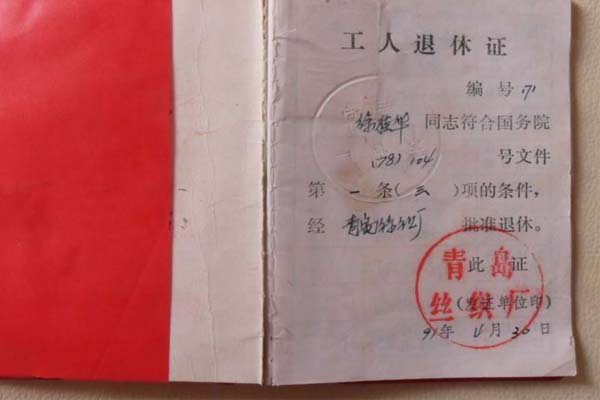 工人退休证
编号 71
徐 华 同志符合国务院
(78) 104 号文件
第 一 条（三）项的条件，
经 青岛丝织厂 批准退休。
此 证
青岛
丝织厂
(发证单位印)
91年 4月 30日